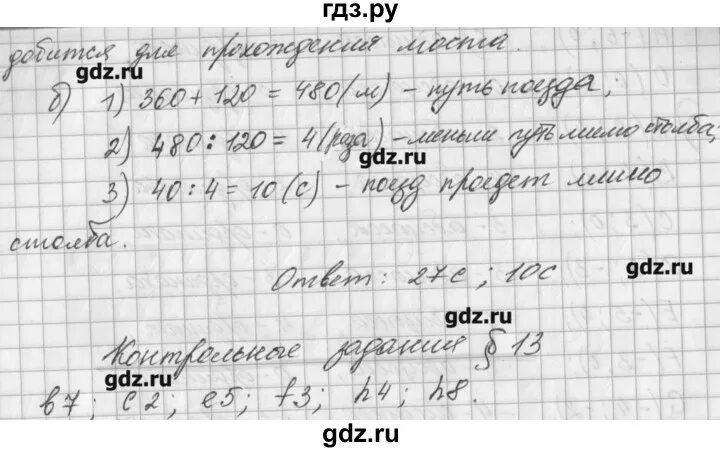 гдз.ру
добится для прохождения моста.
gdz.ru
б) 1) 360 + 120 = 480 (м) – путь поезда,
2) 480 : 120 = 4 (раза) – меньше путь мимо столба;
gdz.ru
3) 40 : 4 = 10 (с) – поезд проедет мимо
столба.
gdz.ru
Ответ: 27с ; 10с
gdz.ru
Контрольные задания § 13
gdz.ru
b7; c2; e5; f3; h4; h8.
gdz.ru